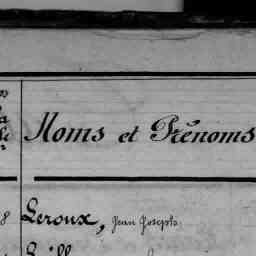 Noms et Prénoms
8 Leroux, Jean Joseph